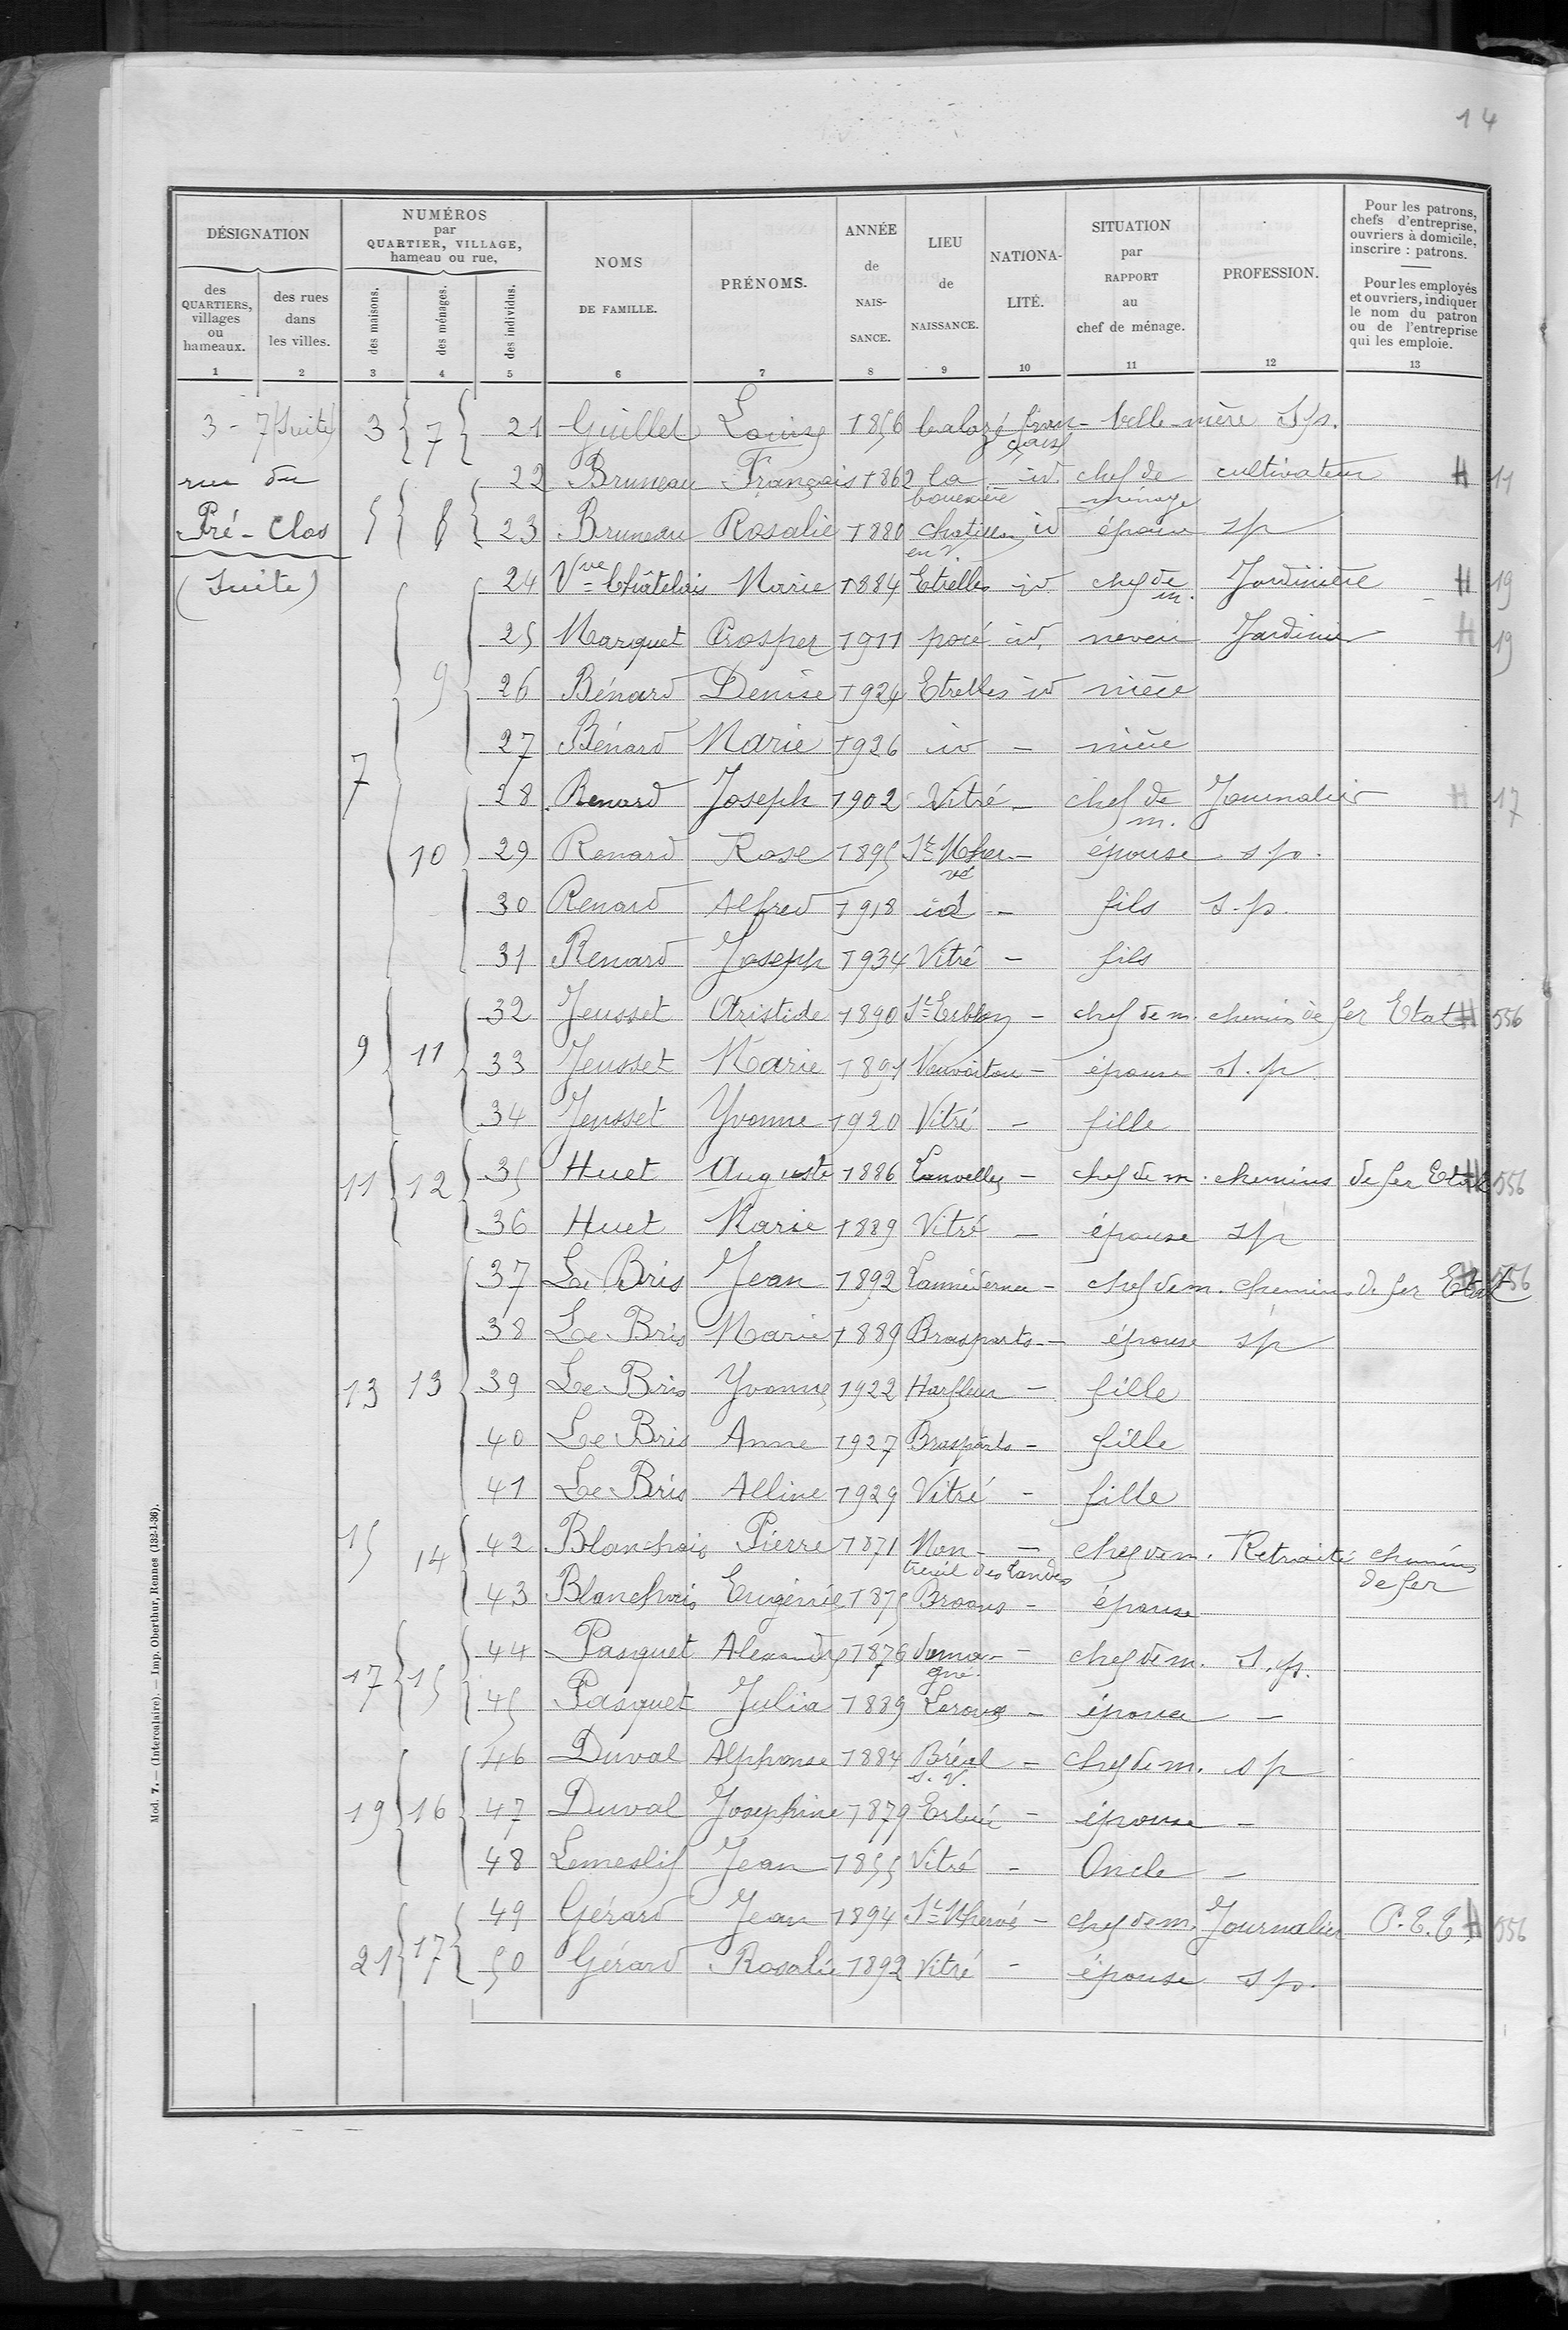 14
DÉSIGNATION
des QUARTIERS, villages ou hameaux.
des rues dans les villes.
NUMÉROS par QUARTIER, VILLAGE, hameau ou rue,
des maisons.
des ménages.
des individus.
NOMS DE FAMILLE.
PRÉNOMS.
ANNÉE de NAIS- SANCE.
LIEU de NAISSANCE.
NATIONA- LITÉ.
SITUATION par RAPPORT au chef de ménage.
PROFESSION.
Pour les patrons, chefs d'entreprise, ouvriers à domicile, inscrire : patrons.
Pour les employés et ouvriers, indiquer le nom du patron ou de l'entreprise qui les emploie.
1 2 3 4 5 6 7 8 9 10 11 12 13
3 - 7 (Suite) 3 7 21 Guillet Louise 1856 balazé fran- çaise belle-mère s.p.
rue du 22 Bruneau François 1862 la bouexière id chef de ménage cultivateur H 11
Pré-Clos 5 8 23 Bruneau Rosalie 1880 Chatillon en V. id épouse sp
(Suite) 24 Vve Châtelais Marie 1884 Etrelles id chef de m. Jardinière H 19
25 Marquet Prosper 1911 pocé id neveu Jardinier H 19
9 26 Bénard Denise 1924 Etrelles id nièce
27 Bénard Marie 1926 id - nièce
7 28 Renard Joseph 1902 Vitré - chef de m. Journalier H 17
10 29 Renard Rose 1895 St Mher- vé - épouse s.p.
30 Renard Alfred 1918 id - fils s.p.
31 Renard Joseph 1934 Vitré - fils
32 Jeusset Aristide 1890 St Erblon - chef de m. chemin de fer Etat H 556
9 11 33 Jeusset Marie 1891 - épouse s.p.
34 Jeusset Yvonne 1920 Vitré - fille
11 12 35 Huet Auguste 1886 Lanvelley - chef de m. chemins de fer Etat H 556
36 Huet Marie 1889 Vitré - épouse sp
37 Le Bris Jean 1892 Lannédernee - chef de m. chemins de fer Etat 556
38 Le Bris Marie 1889 Brasparts - épouse sp
13 13 39 Le Bris Yvonne 1922 Harfleur - fille
40 Le Bris Anne 1927 Brasparts - fille
41 Le Bris Alline 1929 Vitré - fille
15 14 42 Blanchais Pierre 1871 Mon- treuil des landes - chef de m. Retraité chemins de fer
43 Blanchais Eugénie 1875 Broons - épouse
44 Pasquet Alexandre 1876 doma- gné - chef de m. s.p.
17 15 45 Pasquet Julia 1889 Laroux - épouse -
46 Duval Alphonse 1884 Bréal s. V. - chef de m. sp
19 16 47 Duval Josephine 1879 Erbrée - épouse -
48 Lemeslif Jean 1855 Vitré - Oncle -
49 Gérard Jean 1894 St Mhervé - chef de m. Journalier P.T.T. H 556
21 17 50 Gérard Rosalie 1892 Vitré - épouse sp.
Mod. 7. — (Intercalaire). — Imp. Oberthur, Rennes (132-1-36).